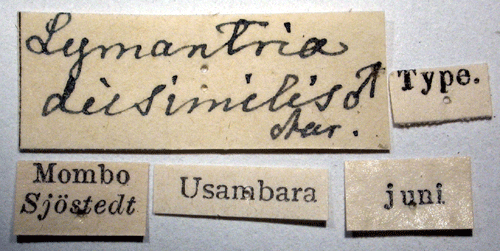 Lymantria
dissimilis ♂
Aur.
Type.
Mombo
Sjöstedt
Usambara
juni